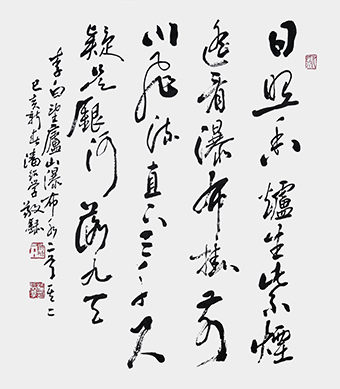 日照香爐生紫煙
遙看瀑布掛前
川飛流直下三千尺
疑是銀河落九天
李白望廬山瀑布水二首其二
己亥新春潘學敬錄